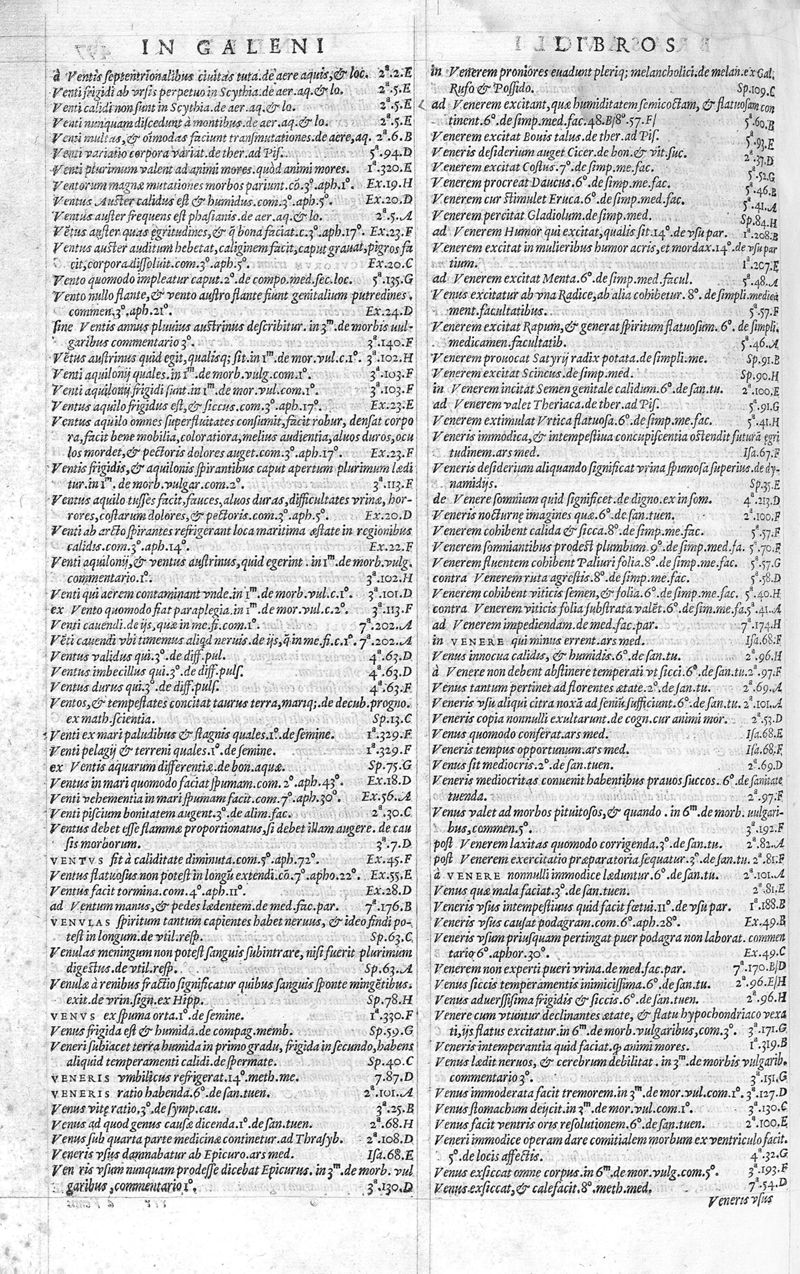 IN GALENI
à Ventis septentrionalibus ciuitas tuta.de aere aquis,& loc. 2ª.2.E
Venti frigidi ab vrsis perpetuo in Scythia.de aer.aq.& lo. 2ª.5.E
Venti calidi non sunt in Scythia.de aer.aq.& lo. 2ª.5.E
Venti nunquam discedunt à montibus.de aer.aq.& lo. 2ª.5.E
Venti multas,& oīmodas faciunt transmutationes.de aere,aq. 2ª.6.B
Venti variatio corpora variat.de ther.ad Pis. 5ª.94.D
Venti plurimum valent ad animi mores.quòd animi mores. 1ª.320.E
Ventorum magnæ mutationes morbos pariunt.cō.3º.aph.1º. Ex.19.H
Ventus Auster calidus est & humidus.com.3º.aph.5º. Ex.20.D
Ventus auster frequens est phasianis.de aer.aq.& lo. 2ª.5.A
Vētus auster quas egritudines,& q̄ bona faciat.c.3º.aph.17º. Ex.23.F
Ventus auster auditum hebetat,caliginem facit,caput grauat,pigros fa
cit,corpora dissoluit.com.3º.aph.5º. Ex.20.C
Vento quomodo impleatur caput.2º.de compo.med.sec.loc. 5ª.135.G
Vento nullo flante,& vento austro flante fiunt genitalium putredines.
commen.3º.aph.21º. Ex.24.D
sine Ventis annus pluuius austrinus describitur.in 3ᵐ.de morbis uul-
garibus commentario 3º. 3ª.140.F
Vētus austrinus quid egit,qualisq; sit.in 1ᵐ.de mor.vul.c.1º. 3ª.102.H
Venti aquilonij quales.in 1ᵐ.de morb.vulg.com.1º. 3ª.103.F
Venti aquilonij frigidi sunt.in 1ᵐ.de mor.vul.com.1º. 3ª.103.F
Ventus aquilo frigidus est,& siccus.com.3º.aph.17º. Ex.23.E
Ventus aquilo omnes superfluitates consumit,facit robur, densat corpo
ra,facit bene mobilia,coloratiora,melius audientia,aluos duros,ocu
los mordet,& pectoris dolores auget.com.3º.aph.17º. Ex.23.F
Ventis frigidis,& aquilonis spirantibus caput apertum plurimum lædi
tur.in 1ᵐ.de morb.vulgar.com.2º. 3ª.113.F
Ventus aquilo tusses facit,fauces,aluos duras,difficultates vrinæ, hor-
rores,costarum dolores,& pectoris.com.3º.aph.5º. Ex.20.D
Venti ab arcto spirantes refrigerant loca maritima æstate in regionibus
calidis.com.3º.aph.14º. Ex.22.F
Venti aquilonij,& ventus austrinus,quid egerint.in 1ᵐ.de morb.vulg.
commentario.1º. 3ª.102.H
Venti qui aerem contaminant vnde.in 1ᵐ.de morb.vul.c.1º. 3ª.101.D
ex Vento quomodo fiat paraplegia.in 1ᵐ.de mor.vul.c.2º. 3ª.113.F
Venti cauendi.de ijs,quæ in me.fi.com.1º. 7ª.202.A
Vēti cauendi vbi timemus aliqd neruis.de ijs,q̄ in me.fi.c.1º. 7ª.202.A
Ventus validus qui.3º.de diff.pul. 4ª.63.D
Ventus imbecillus qui.3º.de diff.puls. 4ª.63.D
Ventus durus qui.3º.de diff.puls. 4ª.63.F
Ventos,& tempestates concitat taurus terra,mariq;.de decub.progno.
ex math.scientia. Sp.13.C
Venti ex mari paludibus & stagnis quales.1º.de semine. 1ª.329.F
Venti pelagij & terreni quales.1º.de semine. 1ª.329.F
ex Ventis aquarum differentiæ.de bon.aquæ. Sp.75.G
Ventus in mari quomodo faciat spumam.com.2º.aph.43º. Ex.18.D
Venti vehementia in mari spumam facit.com.7º.aph.30º. Ex.56.A
Venti piscium bonitatem augent.3º.de alim.fac. 2ª.30.C
Ventus debet esse flammæ proportionatus,si debet illam augere.de cau
sis morborum. 3ª.7.D
VENTVS fit à caliditate diminuta.com.5º.aph.72º. Ex.45.F
Ventus flatuosus non potest in longū extendi.cō.7º.apho.22º. Ex.55.E
Ventus facit tormina.com.4º.aph.11º. Ex.28.D
ad Ventum manus,& pedes lædentem.de med.fac.par. 7ª.176.B
VENVLAS spiritum tantum capientes habet neruus, & ideo findi po-
test in longum.de vtil.resp. Sp.63.C
Venulas meningum non potest sanguis subintrare, nisi fuerit plurimum
digestus.de vtil.resp. Sp.63.A
Venulæ à renibus fractio significatur quibus sanguis sponte mingētibus.
exit.de vrin.sign.ex Hipp. Sp.78.H
VENVS ex spuma orta.1º.de semine. 1ª.330.F
Venus frigida est & humida.de compag.memb. Sp.59.G
Veneri subiacet terra humida in primo gradu, frigida in secundo,habens
aliquid temperamenti calidi.de spermate. Sp.40.C
VENERIS vmbilicus refrigerat.14º.meth.me. 7.87.D
VENERIS ratio habenda.6º.de san.tuen. 2ª.101.A
Venus vitę ratio,3º.de symp.cau. 3ª.25.B
Venus ad quod genus causæ dicenda.1º.de san.tuen. 2ª.68.H
Venus sub quarta parte medicinæ continetur.ad Thrasyb. 2ª.108.D
Veneris vsus damnabatur ab Epicuro.ars med. Isa.68.E
Ven ris vsum nunquam prodesse dicebat Epicurus. in 3ᵐ.de morb. vul
garibus,commentario 1º. 3ª.130.D
LIBROS
in Venerem proniores euadunt pleriq; melancholici.de melan.ex Gal,
Ruffo & Possido. Sp.109.C
ad Venerem excitant,quæ humiditatem semicoctam, & flatuosam con
tinent.6º.de simp.med.fac.48.B/8º.57.F/ 5ª.60.B
Venerem excitat Bouis talus.de ther.ad Pis. 5ª.93.E
Veneris desiderium auget Cicer.de bon.& vit.suc. 2ª.37.D
Venerem excitat Costus.7º.de simp.me.fac. 5ª.52.G
Venerem procreat Daucus.6º.de simp.me.fac. 5ª.46.B
Venerem cur stimulet Eruca.6º.de simp.med.fac. 5ª.41.A
Venerem percitat Gladiolum.de simp.med. Sp.84.H
ad Venerem Humor qui excitat,qualis sit.14º.de vsu par. 1ª.208.B
Venerem excitat in mulieribus humor acris,et mordax.14º.de vsu par
tium. 1ª.207.E
ad Venerem excitat Menta.6º.de simp.med.facul. 5ª.48.A
Venus excitatur ab vna Radice,ab alia cohibetur. 8º. de simpli.medica
ment.facultatibus. 5ª.57.F
Venerem excitat Rapum,& generat spiritum flatuosum. 6º. de simpli.
medicamen.facultatib. 5ª.46.A
Venerem prouocat Satyrij radix potata.de simpli.me. Sp.91.B
Venerem excitat Scincus.de simp.med. Sp.90.H
in Venerem incitat Semen genitale calidum.6º.de san.tu. 2ª.100.E
ad Venerem valet Theriaca.de ther.ad Pis. 5ª.91.G
Venerem extimulat Vrtica flatuosa.6º.de simp.me.fac. 5ª.41.H
Veneris immodica,& intempestiua concupiscentia ostendit futurā ęgri
tudinem.ars med. Isa.67.F
Veneris desiderium aliquando significat vrina spumosa superius.de dy-
namidijs. Sp.35.E
de Venere somnium quid significet.de digno.ex insom. 4ª.213.D
Veneris nocturnę imagines quæ.6º.de san.tuen. 2ª.100.F
Venerem cohibent calida & sicca.8º.de simp.me.fac. 5ª.57.F
Venerem somniantibus prodest plumbum.9º.de simp.med.fa. 5ª.70.F
Venerem fluentem cohibent Paliuri folia.8º.de simp.me.fac. 5ª.57.G
contra Venerem ruta agrestis.8º.de simp.me.fac. 5ª.58.D
Venerem cohibent viticis semen,& folia.6º.de simp.me.fac. 5ª.40.H
contra Venerem viticis folia substrata valēt.6º.de sim.me.fa.5ª.41.A
ad Venerem impediendam.de med.fac.par. 7ª.174.H
in VENERE qui minus errent.ars med. Isa.68.F
Venus innocua calidis, & humidis.6º.de san.tu. 2ª.96.H
à Venere non debent abstinere temperati vt sicci.6º.de san.tu.2ª.97.F
Venus tantum pertinet ad florentes ætate.2º.de san.tu. 2ª.69.A
Veneris vsu aliqui citra noxā ad seniū sufficiunt.6º.de san.tu. 2ª.101.A
Veneris copia nonnulli exultarunt.de cogn.cur animi mor. 2ª.53.D
Venus quomodo conferat.ars med. Isa.68.E
Veneris tempus opportunum.ars med. Isa.68.F
Venus sit mediocris.2º.de san.tuen. 2ª.69.D
Veneris mediocritas conuenit habentibus prauos succos. 6º.de sanitate
tuenda. 2ª.97.F
Venus valet ad morbos pituitosos,& quando.in 6ᵐ.de morb. uulgari-
bus,commen.5º. 3ª.192.F
post Venerem laxitas quomodo corrigenda.3º.de san.tu. 2ª.82.A
post Venerem exercitatio præparatoria sequatur.3º.de san.tu. 2ª.81.F
à VENERE nonnulli immodice læduntur.6º.de san.tu. 2ª.101.A
Venus quæ mala faciat.3º.de san.tuen. 2ª.81.E
Veneris vsus intempestiuus quid facit fœtui.11º.de vsu par. 1ª.188.B
Veneris vsus causat podagram.com.6º.aph.28º. Ex.49.B
Veneris vsum priusquam pertingat puer podagra non laborat. commen
tario 6º.aphor.30º. Ex.49.C
Venerem non experti pueri vrina.de med.fac.par. 7ª.170.B/D
Venus siccis temperamentis inimicissima.6º.de san.tu. 2ª.96.E/H
Venus aduersissima frigidis & siccis.6º.de san.tuen. 2ª.96.H
Venere cum vtuntur declinantes ætate,& flatu hypochondriaco vexa
ti,ijs flatus excitatur.in 6ᵐ.de morb.vulgaribus,com.3º. 3ª.171.G
Veneris intemperantia quid faciat.q. animi mores. 1ª.319.B
Venus lædit neruos,& cerebrum debilitat.in 3ᵐ.de morbis vulgarib.
commentario 3º. 3ª.151.G
Venus immoderata facit tremorem.in 3ᵐ.de mor.vul.com.1º. 3ª.127.D
Venus stomachum deijcit.in 3ᵐ.de mor.vul.com.1º. 3ª.130.C
Venus facit ventris oris resolutionem.6º.de san.tuen. 2ª.100.E
Veneri immodice operam dare comitialem morbum ex ventriculo facit.
5º.de locis affectis. 4ª.32.G
Venus exsiccat omne corpus.in 6ᵐ.de mor.vulg.com.5º. 3ª.193.F
Venus exsiccat,& calefacit.8º.meth.med. 7ª.54.D
Veneris vsus